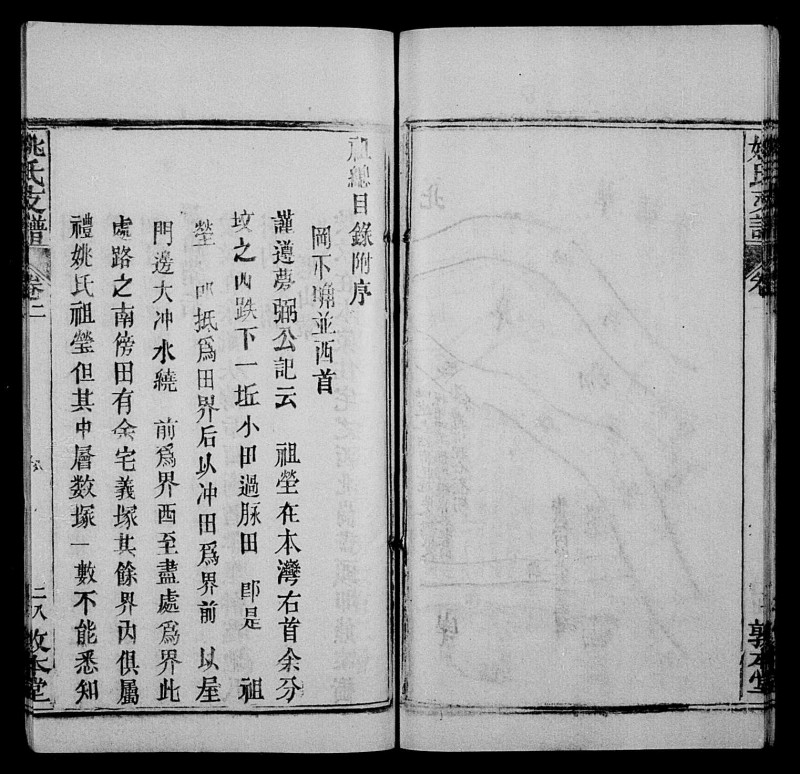 姚氏支譜
卷
敦本堂
北
祖總目錄附序
岡不嘴並西首
謹遵夢弼公記云 祖塋在本灣右首余分
墳之內跌下一坵小田過脉田 即是 祖
塋 抵為田界后以冲田為界前 以屋
門邊大冲水繞 前為界西至盡處為界此
處路之南傍田有余宅義塚其餘界內俱屬
禮姚氏祖塋但其中層数塚一數不能悉知
姚氏支譜
卷二
二八
敦本堂